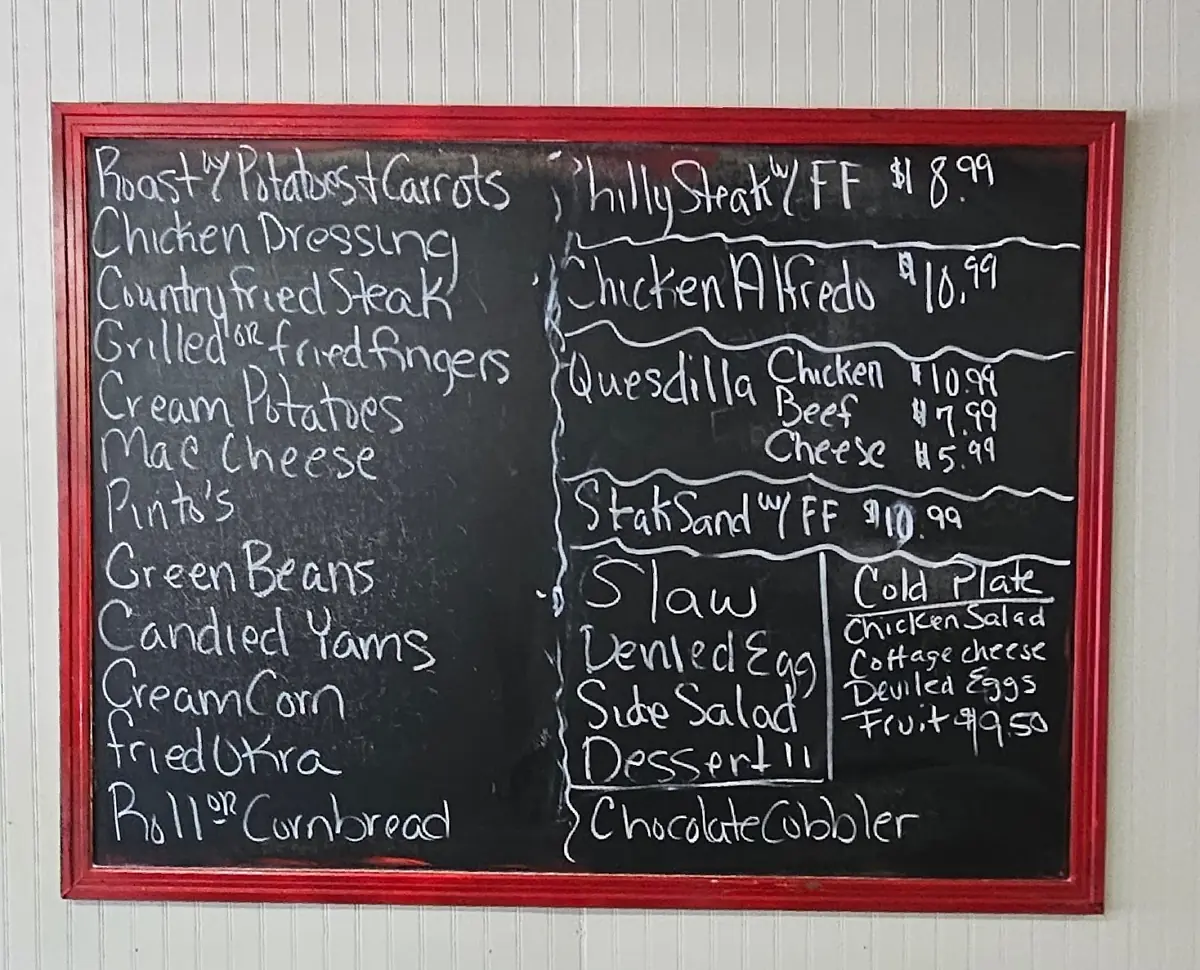 Roast w/ Potatoes + Carrots
Chicken Dressing
Country fried Steak
Grilled or fried fingers
Cream Potatoes
Mac Cheese
Pinto's
Green Beans
Candied Yams
Cream Corn
fried Okra
Roll or Cornbread
Philly Steak w/ FF $8.99
Chicken Alfredo $10.99
Quesdilla Chicken $10.99
Beef $7.99
Cheese $5.99
Steak Sand w/ FF $10.99
Slaw
Deviled Egg
Side Salad
Dessert !!
Cold Plate
Chicken Salad
Cottage cheese
Deviled Eggs
Fruit $9.50
Chocolate Cobbler